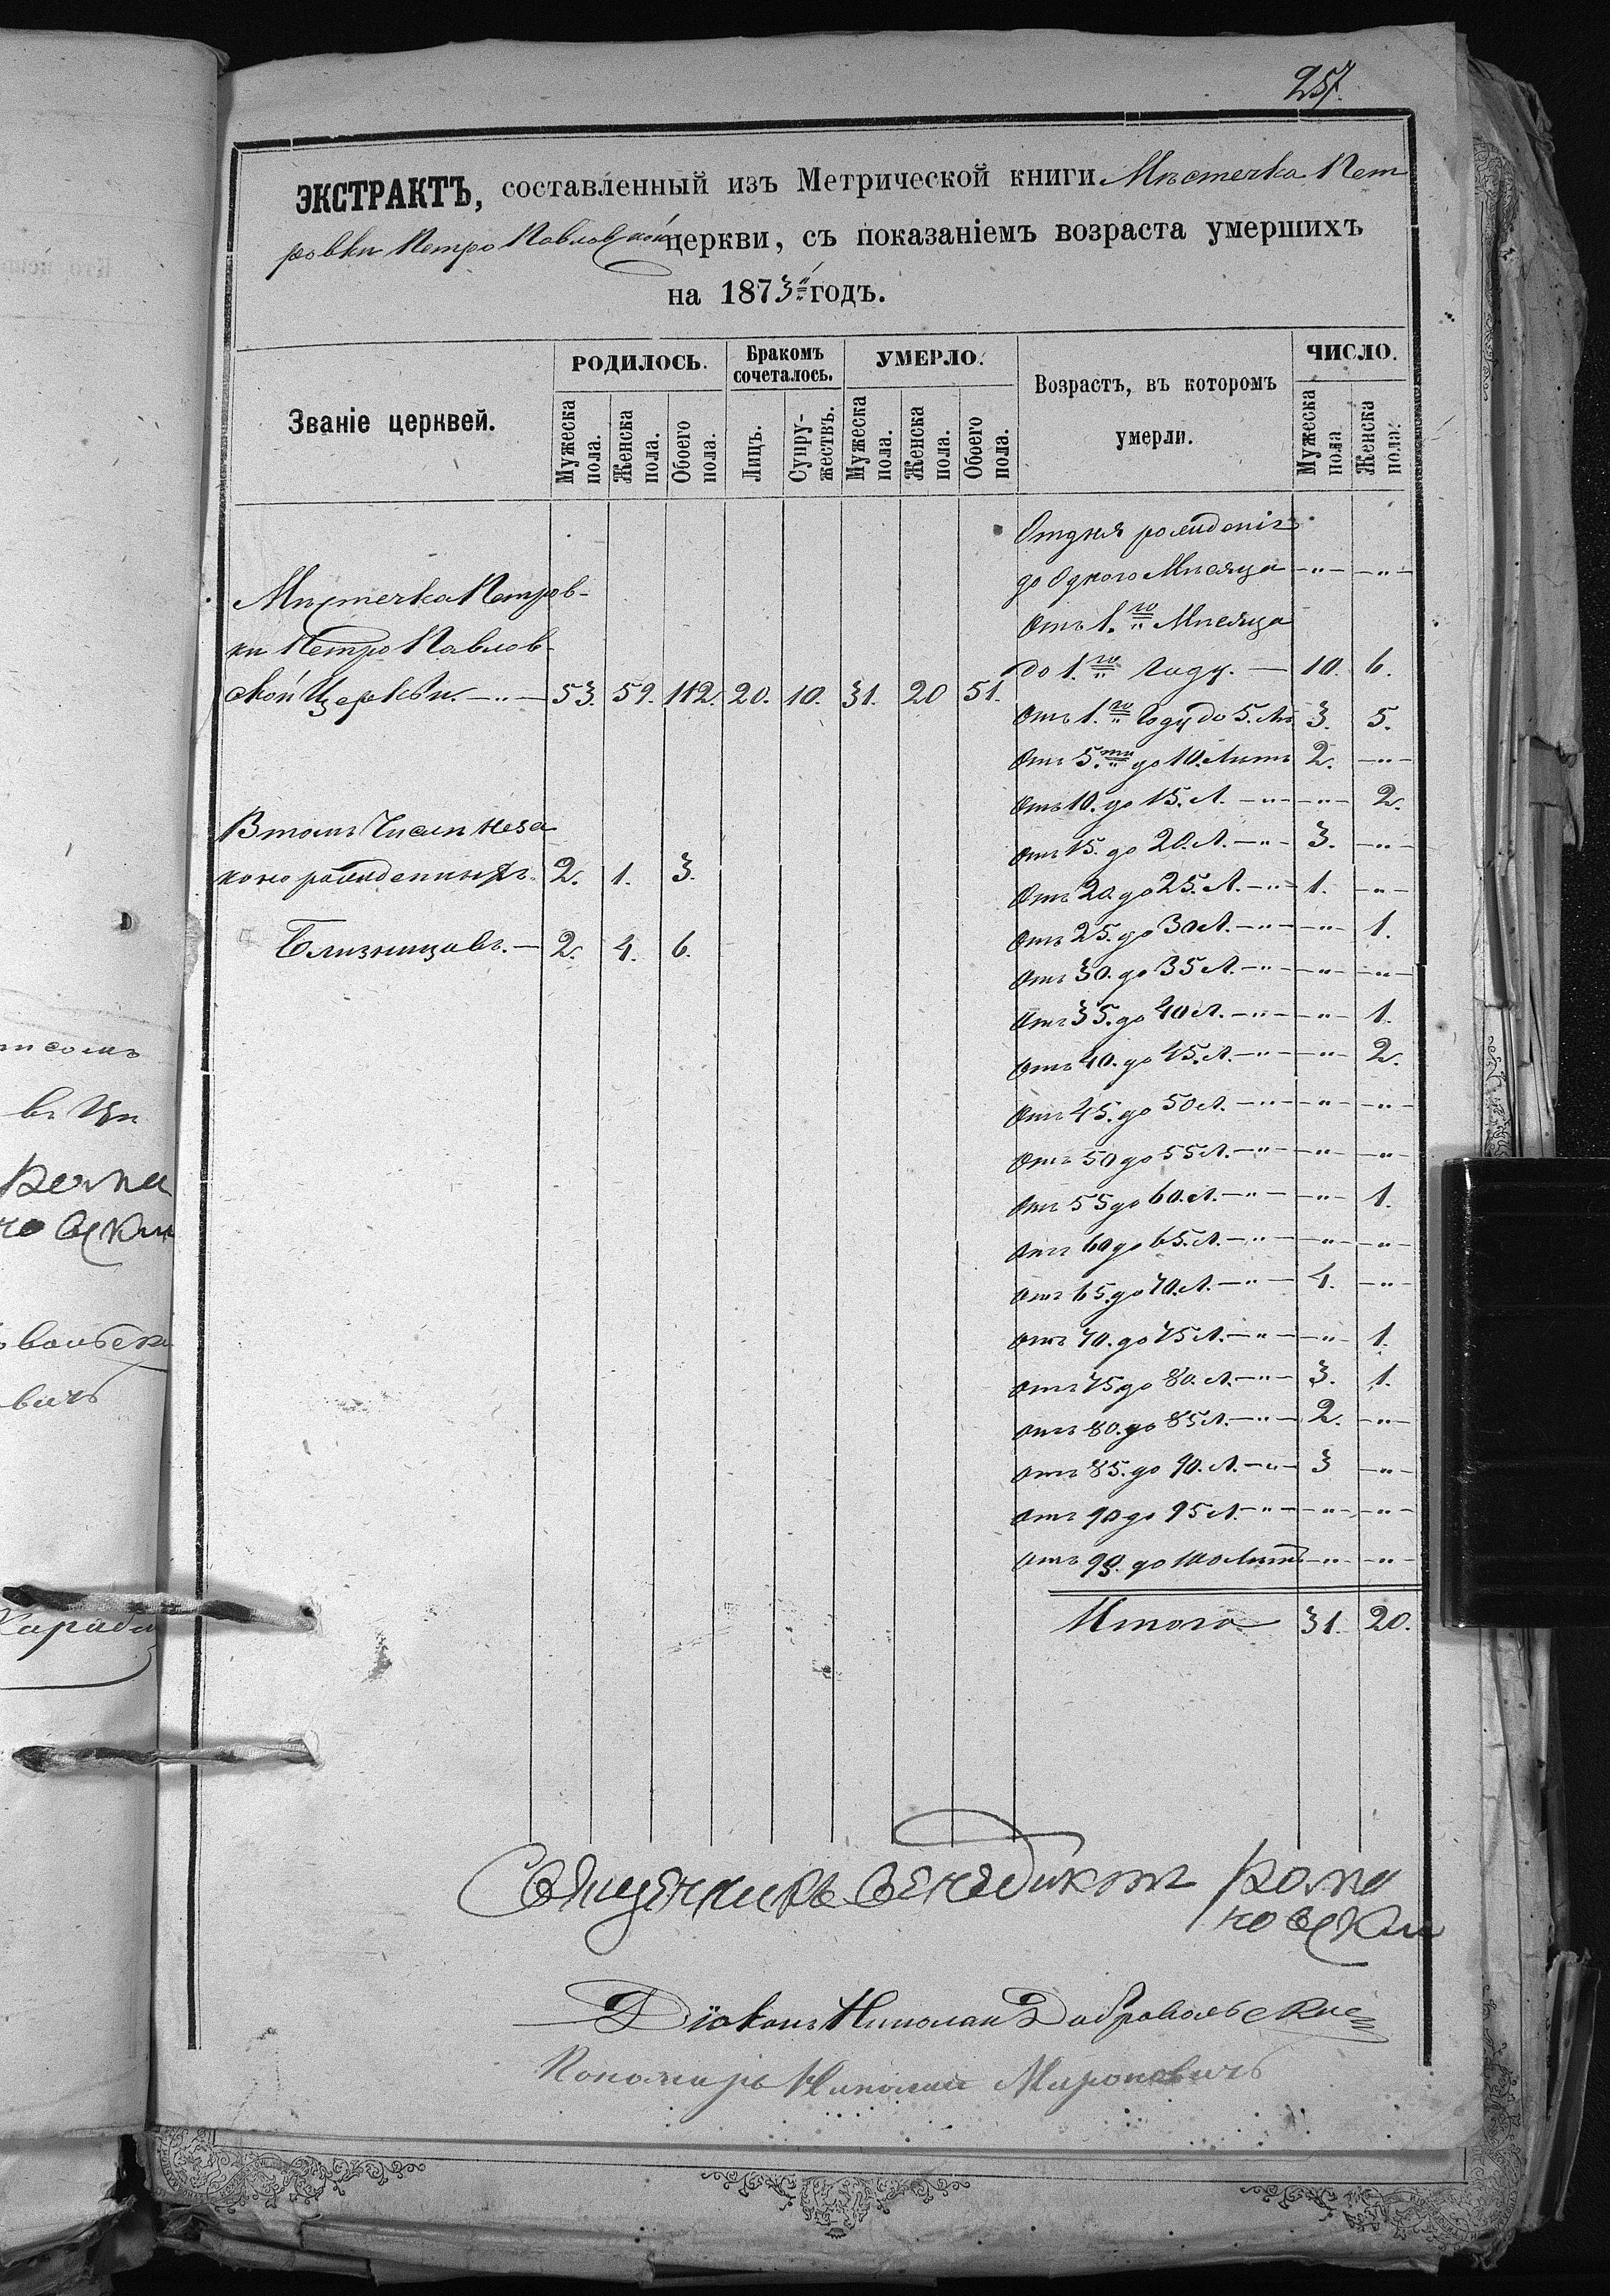 257.
ЭКСТРАКТЪ, составленный изъ Метрической книги Мѣстечка Пет
ровки Петро Павловской церкви, съ показаніемъ возраста умершихъ
на 1873й годъ.
Званіе церквей.
РОДИЛОСЬ.
Бракомъ сочеталось.
УМЕРЛО.
Возрастъ, въ которомъ умерли.
ЧИСЛО.
Мужеска пола.
Женска пола.
Обоего пола.
Лицъ.
Супружествъ.
Мужеска пола.
Женска пола.
Обоего пола.
Мужеска пола
Женска пола.
Мѣстечка Петров-
ки Петро Павлов-
ской Церкви. —"— 53. 59. 112. 20. 10. 31. 20 51.
В томъ Числѣ Неза
коно рожденныхъ. 2. 1. 3.
Близнецовъ. — 2. 4. 6.
Отдня рожденія
до Одного Мѣсяца —"— —"—
Отъ 1.го Мѣсяца
до 1.го Году. — 10. 6.
Отъ 1.го Году до 5. Лѣ 3. 5.
Отъ 5.ти до 10. Лѣтъ 2. —"—
Отъ 10. до 15. Л. —"— —"— 2.
Отъ 15. до 20. Л. —"— 3. —"—
Отъ 20. до 25. Л. —"— 1. —"—
Отъ 25. до 30 Л. —"— —"— 1.
Отъ 30. до 35 Л. —"— —"— —"—
Отъ 35. до 40 Л. —"— —"— 1.
Отъ 40. до 45. Л. —"— —"— 2.
Отъ 45. до 50 Л. —"— —"— —"—
Отъ 50 до 55 Л. —"— —"— —"—
Отъ 55 до 60. Л. —"— —"— 1.
Отъ 60 до 65. Л. —"— —"— —"—
Отъ 65. до 70. Л. —"— 4. —"—
Отъ 70. до 75 Л. —"— —"— 1.
Отъ 75 до 80. Л. —"— 3. 1.
Отъ 80. до 85 Л. —"— 2. —"—
Отъ 85. до 90. Л. —"— 3 —"—
Отъ 90 до 95 Л. —"— —"— —"—
Отъ 95. до 100 Лѣтъ —"— —"—
Итого 31. 20.
Священикъ Венедиктъ Рома
новски
Діаконъ Николай Добровольски
Пономарь Николай Мироновичъ